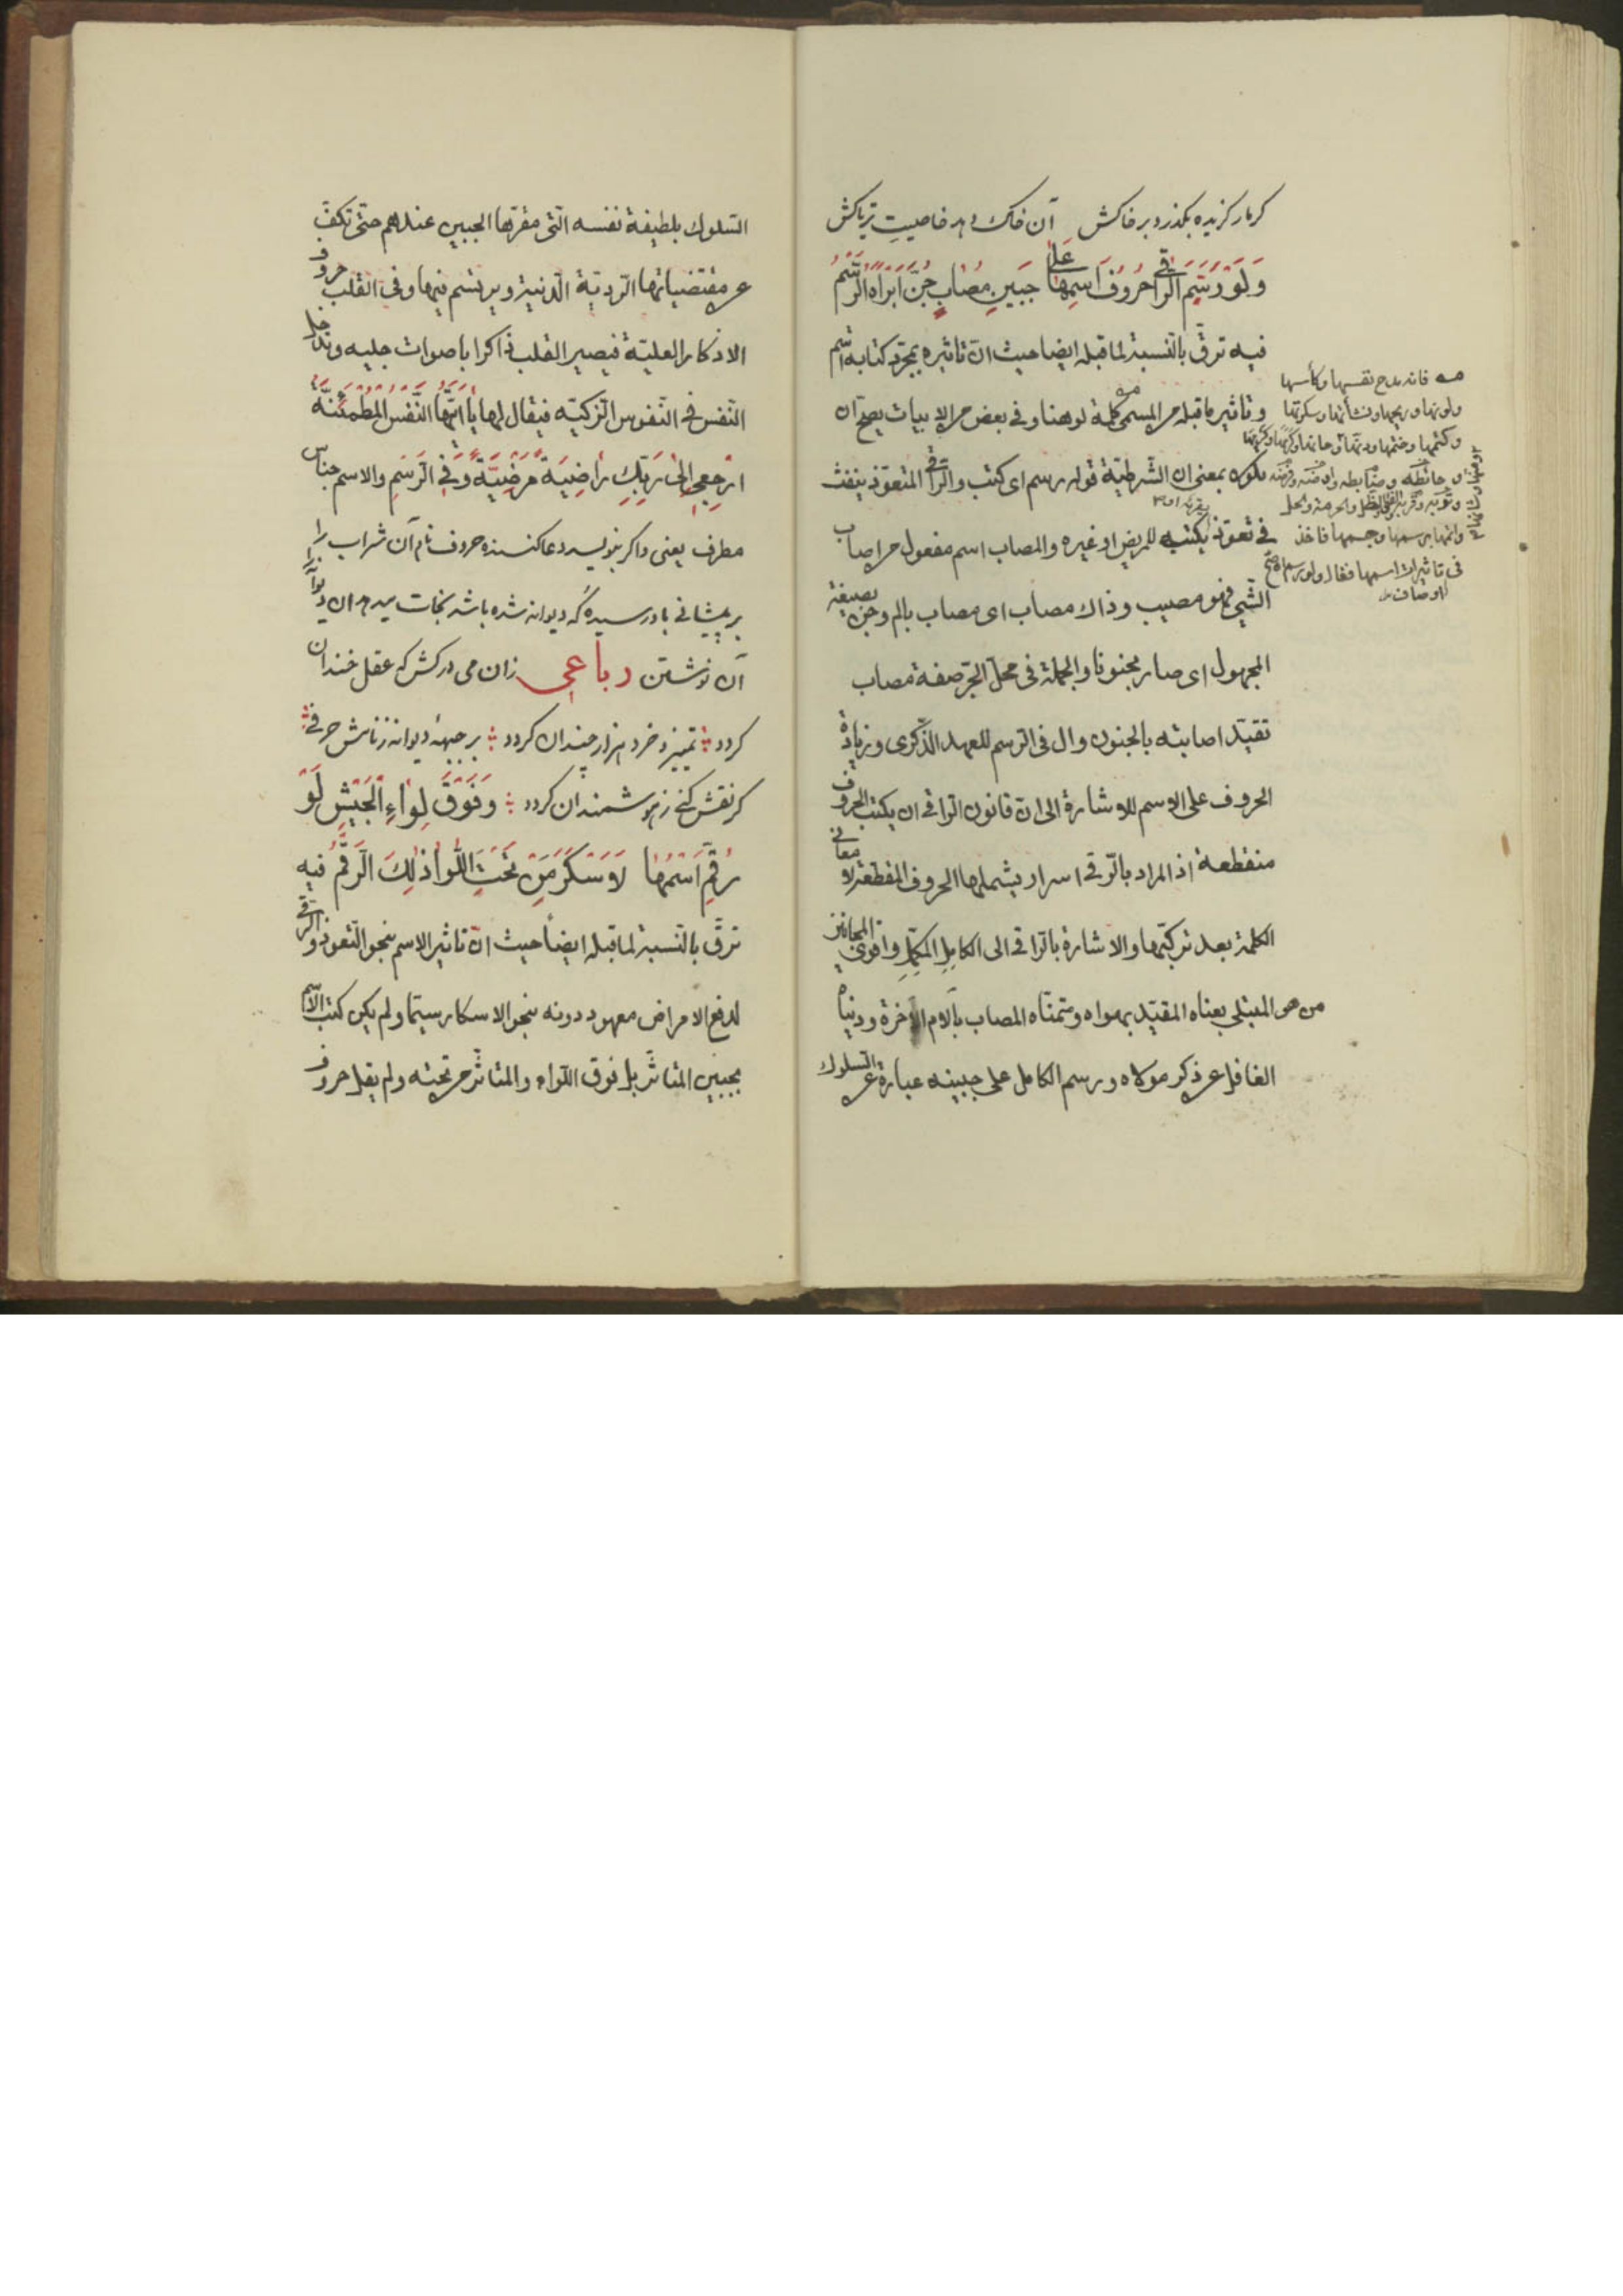 کر مار کزیده بکذرد بر خاکش آن خاک دهد خاصیت تریاکش
وَلَوْ رَسَمَ الرَّاقِي حُرُوفَ اسْمِهَا عَلَى جَبِينِ مُصَابٍ جُنَّ أَبْرَأَهُ الرَّسْمُ
فيه ترق بالنسبة لما قبله ايضا حيث ان تاثيره بمجرد كتابه اسم
وتاثير ما قبله من المسمى كلمة لو هنا وفي بعض من الابيات يصح ان
يكون بمعنى ان الشرطية قوله رسم اى كتب والراقى المتعوذ ينفث
فى تعوذ يكتبه للمريض او غيره والمصاب اسم مفعول من اصاب
الشئ فهو مصيب وذاك مصاب اى مصاب بالم وجن بصيغة
المجهول اى صار مجنونا والجملة فى محل الجر صفة مصاب
تقيد اصابته بالجنون وال فى الرسم للعهد الذكرى وزيادة
الحروف على الاسم للاشارة الى ان قانون الراقى ان يكتب الحروف
منقطعة اذ المراد بالرقى اسرار يشملها الحروف المقطعة لا معانى
الكلمة بعد تركبها والاشارة بالراقى الى الكامل المكمل واقوى المجانين
من هو المبتلى بعناه المقيد بهواه ومتمناه المصاب بآلام الآخرة ودنياه
الغافل عن ذكر مولاه ورسم الكامل على جبينه عبارة عن السلوك
فانه مدح نفسها وكأسها
ولونها وريحها ونشأتها وسكرتها
وكتمها وختمها
وانها برسمها وجسمها فاخذ
فى تاثيرات اسمها فقال ولو رسم الخ
اوصاف
السلوك بلطيفة نفسه التى مقرها الجبين عندهم حتى تكف
عن مقتضياتها الردية الدنية ويرتسم فيها وفى القلب حروف
الاذكار العلية فيصير القلب ذاكرا باصوات جليه وتدخل
النفس فى النفوس الزكيه فيقال لها يَا أَيَّتُهَا النَّفْسُ الْمُطْمَئِنَّةُ
ارْجِعِي إِلَى رَبِّكِ رَاضِيَةً مَرْضِيَّةً وفى الرسم والاسم جناس
مطرف يعنى واكر بنويسد دعا كننده حروف نام آن شراب را
بر پيشانى بادرسيده كه ديوانه شده باشد نجات ميدهد ان ديوانه را
آن نوشتن رباعى زان مى دركش كه عقل خندان
كردد تميز وخرد هزار چندان كردد بر جبهۀ ديوانه ز نامش حرفى
كر نقش كنى ز هوشمندان كردد وَفَوْقَ لِوَاءِ الْجَيْشِ لَوْ
رُقِمَ اسْمُهَا لَأَسْكَرَ مَنْ تَحْتَ اللِّوَا ذَلِكَ الرَّقْمُ فيه
ترق بالنسبة لما قبله ايضا حيث ان تاثير الاسم بنحو التعوذ والرقى
لدفع الامراض معهود دونه بنحو الاسكار سيما ولم يكن كتب الاسم
بجبين المتاثر بل فوق اللواء والمتاثر من تحته ولم يقل حروف